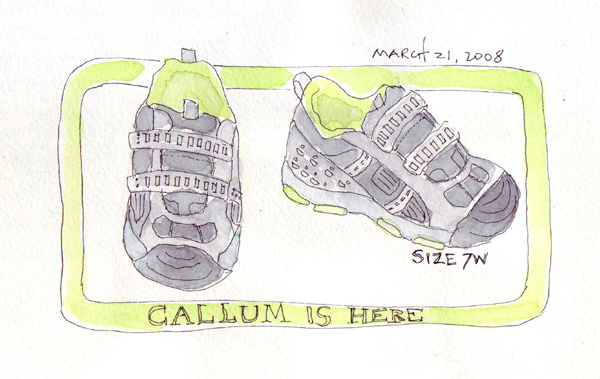 MARCH 21, 2008
SIZE 7W
CALLUM IS HERE